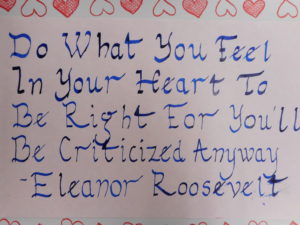 Do What You Feel
In Your Heart To
Be Right For You'll
Be Criticized Anyway
-Eleanor Roosevelt